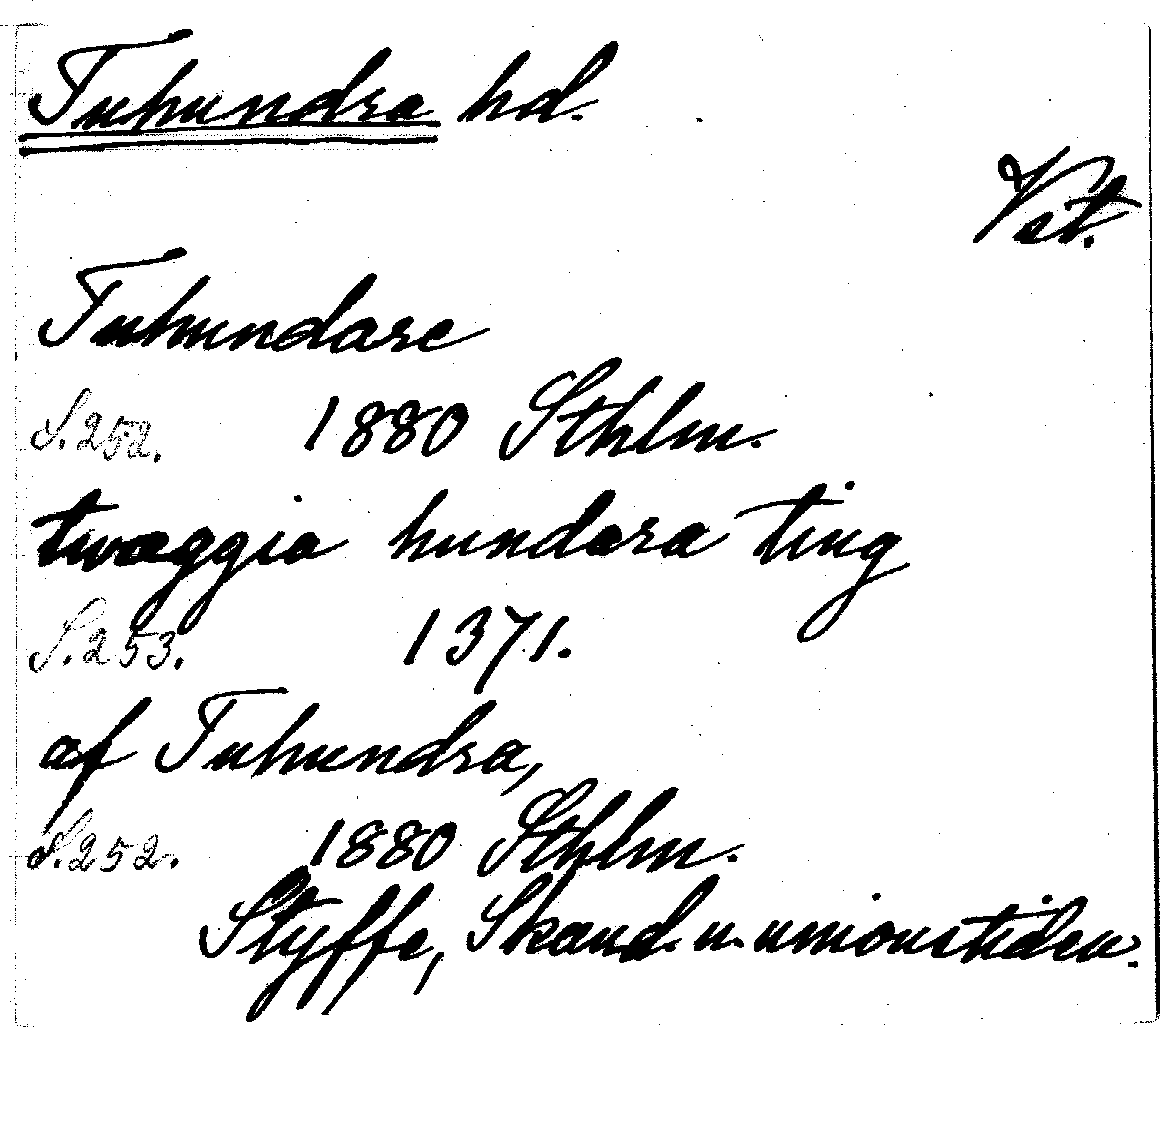 Tuhundra hd.
Vst.
Tuhundare
S.252. 1880 Sthlm.
twæggia hundara ting
S.253. 1371.
af Tuhundra,
S.252. 1880 Sthlm.
Styffe, Skand. u. unionstiden.